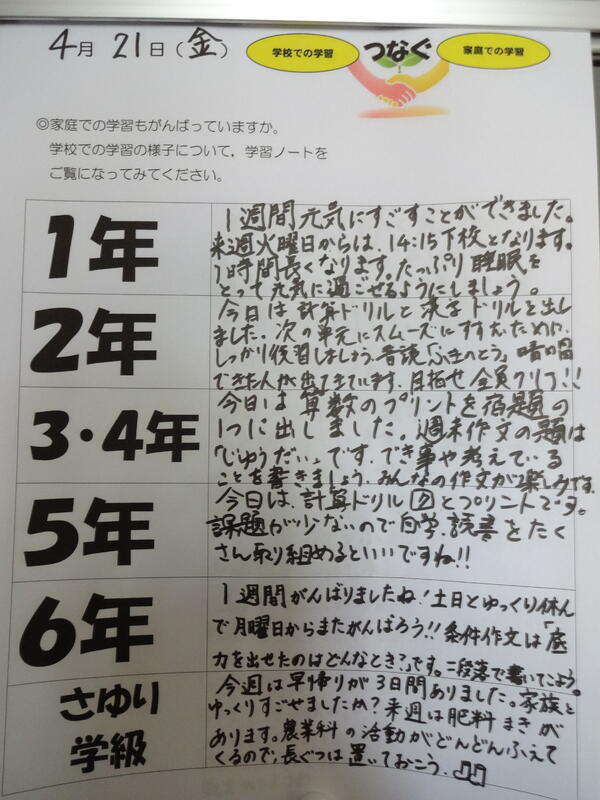 4月 21日(金)
学校での学習
つなぐ
家庭での学習
◎家庭での学習もがんばっていますか。
学校での学習の様子について,学習ノートを
ご覧になってみてください。
1年
1週間元気にすごすことができました。
来週火曜日からは、14:15下校となります。
1時間長くなります。たっぷり睡眠を
とって元気に過ごせるようにしましょう。
2年
今日は計算ドリルと漢字ドリルを出し
ました。次の単元にスムーズにすすむために、
しっかり復習しましょう。音読「ふきのとう」暗唱
できた人が出てきています。目指せ全員クリア!!
3・4年
今日は算数のプリントを宿題の
1つに出しました。週末作文の題は
「じゆうだい」です。でき事や考えている
ことを書きましょう。みんなの作文が楽しみです。
5年
今日は、計算ドリル⑦とプリントです。
課題が少ないので自学、読書をたく
さん取り組めるといいですね!!
6年
1週間がんばりましたね!土日とゆっくり休ん
で月曜日からまたがんばろう!!条件作文は「底
力を出せたのはどんなとき?」です。二段落で書いてこよう。
さゆり
学級
今週は早帰りが3日間ありました。家族と
ゆっくりすごせましたか?来週は肥料まきが
あります。農業科の活動がどんどんふえて
くるので、長ぐつは置いておこう。